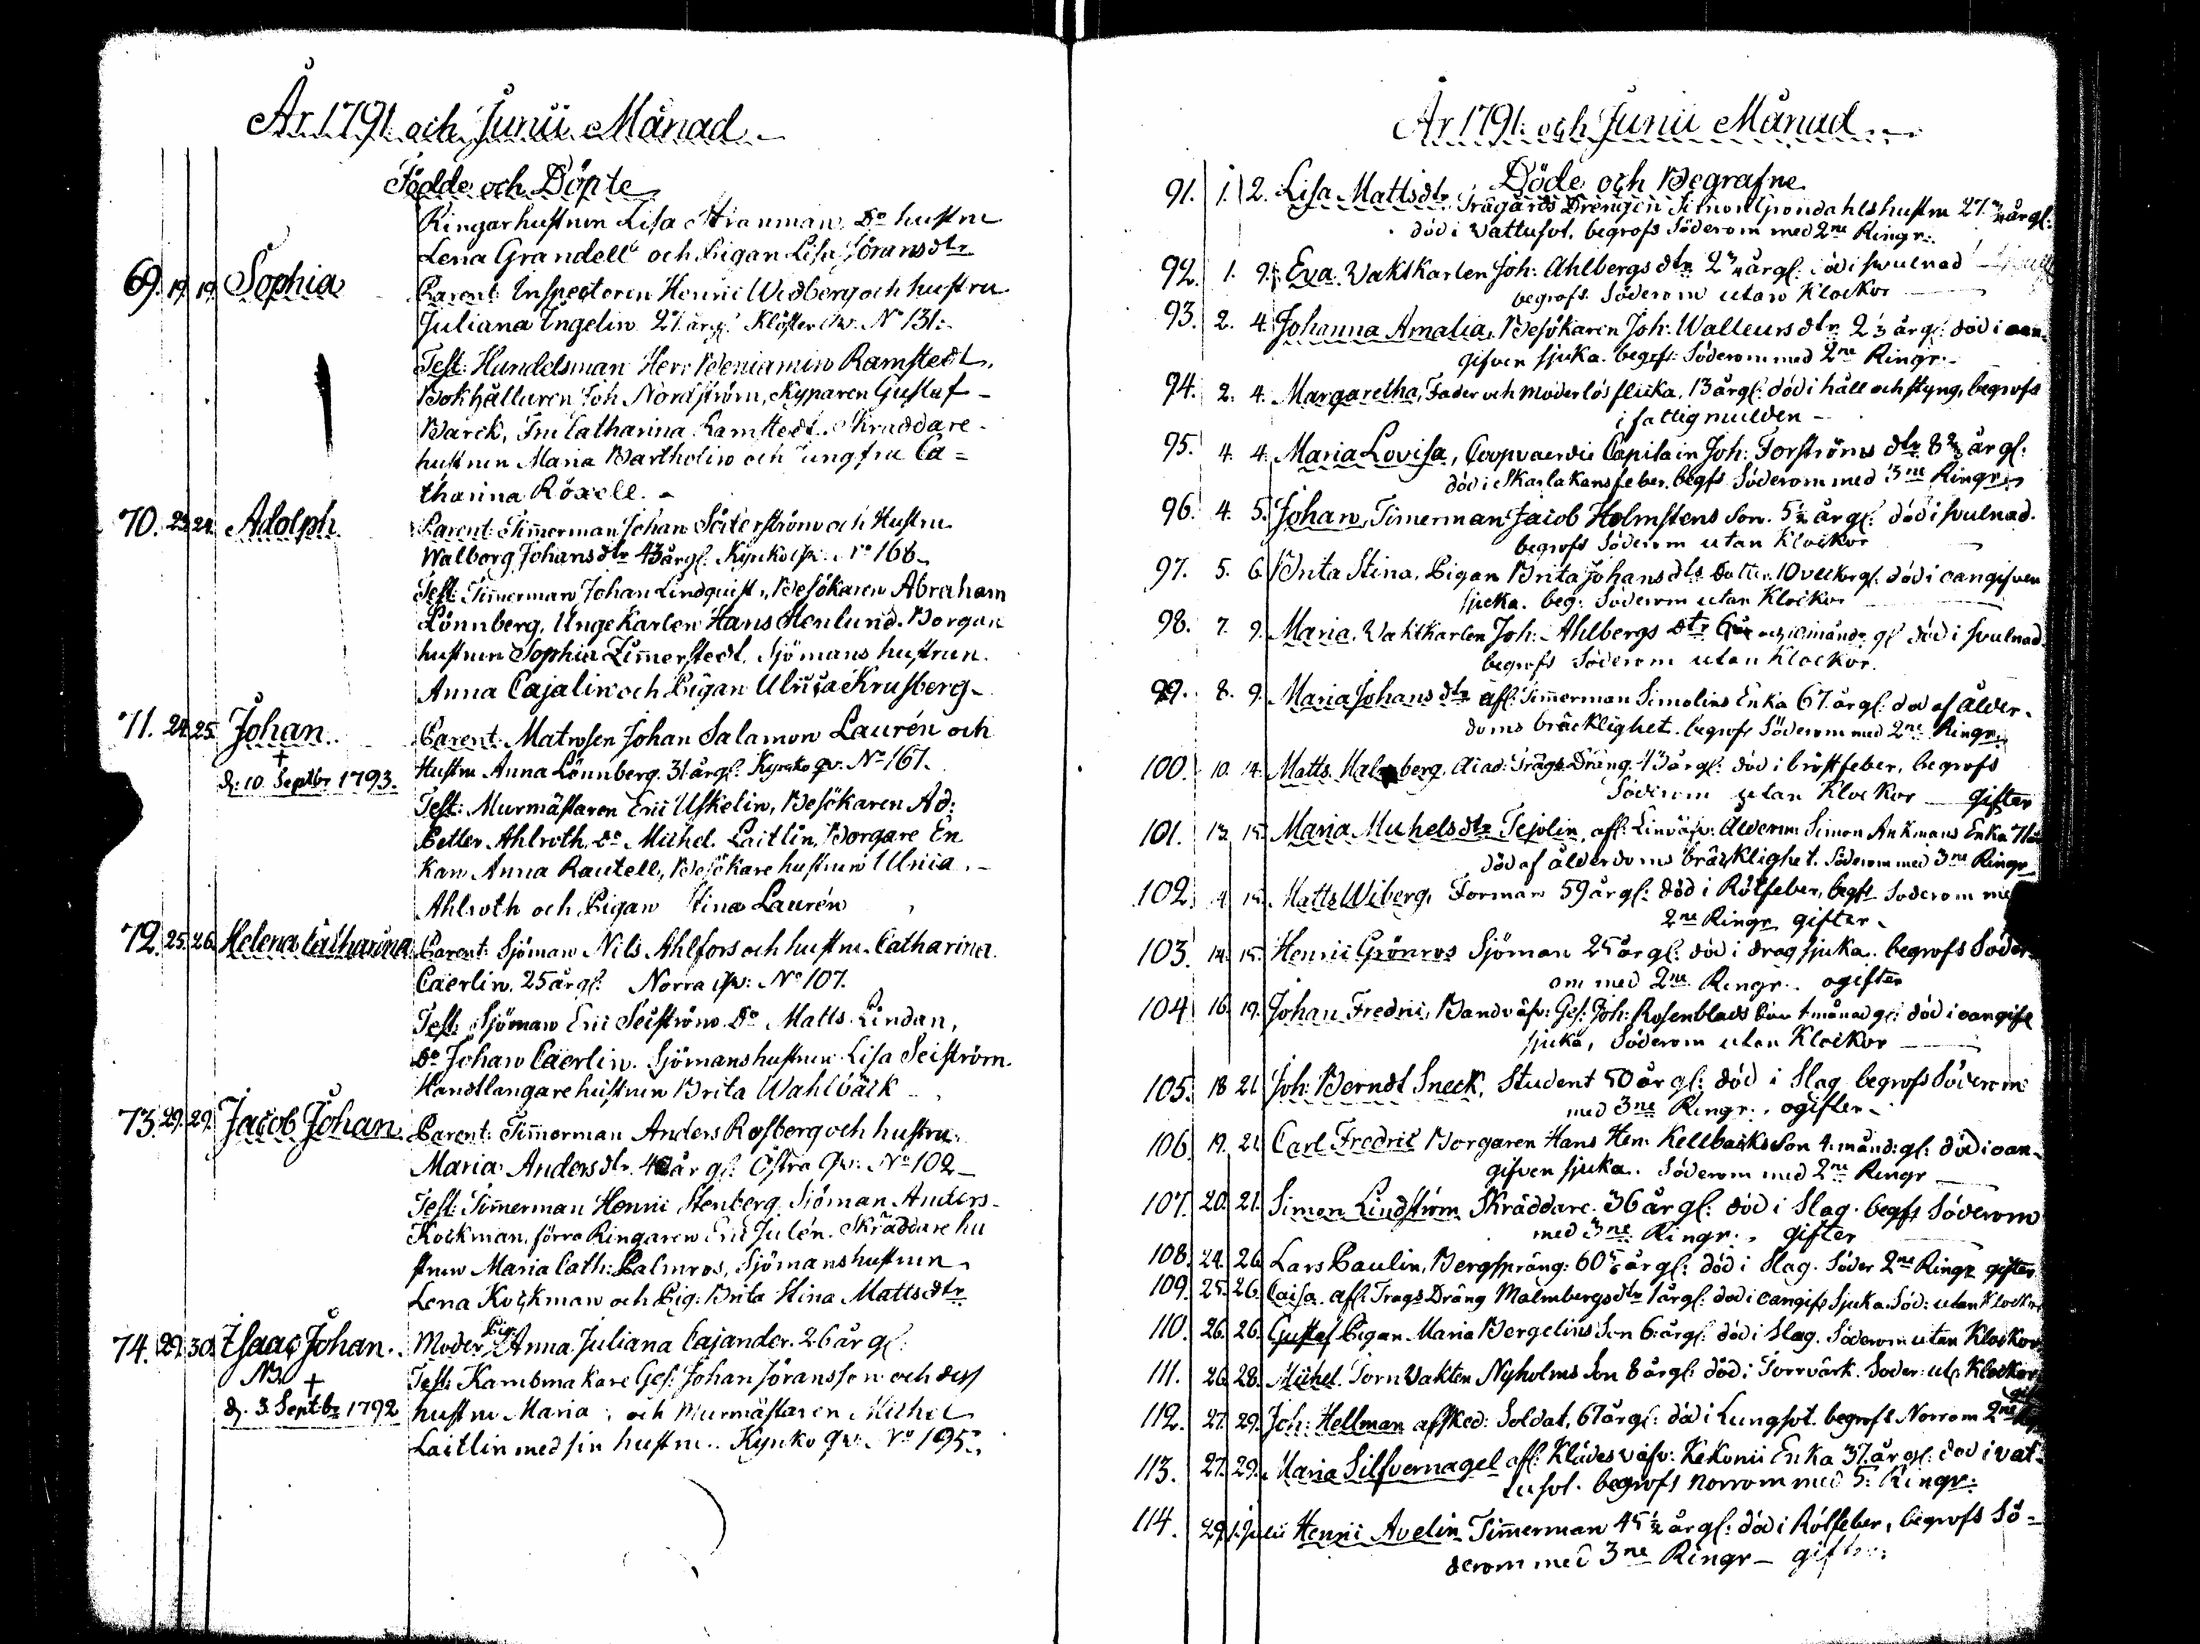 År 1791 och Junii Månad
Födde och Döpte
Ringarhustrun Lisa Stranman Do hustru
Lena Grandell och Pigan Lisa Joransdtr
69. 19 19 Sophia
Parent: Inspectoren Henric Wedberg och hustru
Juliana Ingelin 27 årgl. Klöster qv: No 131:
Test: Handelsman Herr Beniamin Ramstedt,
Bokhållaren Joh Nordström, Kyparen Gustaf
Barck, Fru Catharina Ramstedt. Skraddare
hustrun Maria Bartholin och Jungfru Ca=
tharina Röxell.
70. 23 24. Adolph
Parent: Timerman Johan Söderström och Hustru
Walborg Johansdtr 43 årgl. Kyrko qv: No 166
Test: Timerman Johan Lindquist, Besökaren Abraham
Lönnberg, Unge Karlen Hans Henlund. Borgar
hustrun Sophia Zimerstedt, Sjömans hustrun
Anna Cajalin och Pigan Ulrica Krusberg
71. 24 25. Johan
Parent: Matrosen Johan Salamon Laurén och
Hustru Anna Lönnberg. 31 årgl: Kyrko qv: No 161.
+
d: 10 Septbr 1793.
Test: Murmästaren Eric Uskelin, Besökaren Ad:
Petter Ahlroth, Do Michel Laitlin, Borgare En
kan Anna Rautell, Besökare hustrun Ulrica
Ahlroth och Pigan Stina Laurén
72. 25. 26. Helena Catharina
Parent: Sjöman Nils Ahlfors och hustru Catharina
Caerlin. 25 årgl: Norra qv: No 107.
Test: Sjöman Eric Seiström Do Matts Lindan,
Do Johan Caerlin. Sjömanshustrun Lisa Seiström
Handtlangarehustrun Brita Wahlbäck
73. 29. 29. Jacob Johan
Parent: Timerman Anders Rosberg och hustru
Maria Andersdtr. 40 år gl: Östra qv: No 102
Test: Timerman Henric Stenberg, Sjöman Anders
Kockman, förra Ringaren Eric Julén. Skräddare hu
strun Maria Cath: Palmros, Sjömanshustrun
Lena Kockman och Pig: Brita Stina Mattsdtr
74. 29. 30. Isaac Johan
Moder Pig: Anna Juliana Cajander. 26 år gl:
NB +
Test: Kambmakare Ges: Johan Joransson och dess
d. 3. Septbr 1792
hustru Maria, och Murmästaren Michel
Laitlin med sin hustru. Kyrko qv: No 195.
År 1791: och Junii Månad
Döde och Begrafne
91. 1. 2. Lisa Mattsdtr Trägårds Drengen Simon Grondahls hustru 27 årgl:
död i Vattusot. begrofs Söderom med 2ne Ringr:
92. 1. 9. Eva. Vaktkarlen Joh: Ahlbergs dtr 2 årgl: död i svulnad
begrofs Söderom utan Klockor
93. 2. 4. Johanna Amalia, Besökaren Joh: Walleurs dtr 2 1/3 årgl: död i oan-
gifven sjuka. begrfs: Söderom med 2ne Ringr.
94. 2. 4. Margaretha, Fader och Moderlös flicka, 13 årgl: död i håll och styng, begrofs
i fattigmullen
95. 4. 4. Maria Lovisa, Coopvaerdie Capitain Joh: Forströms dtr 8 2/3 år gl:
död i Skarlakansfeber. begfs Söderom med 3ne Ringr
96. 4. 5. Johan, Timerman Jacob Holmstens Son. 5 1/2 år gl: död i svulnad.
begrofs Söderom utan Klockor
97. 5. 6. Brita Stina, Pigan Brita Johansdtrs Dotter. 10 veckor gl. död i oangifven
sjuka. beg: Söderom utan Klockor
98. 7. 9. Maria, Vaktkarlen Joh: Ahlbergs dtr 6 år och 10 måndr gl död i svulnad
begrofs Söderom utan Klockor.
99. 8. 9. Maria Johansdtr afl: Timerman Simolins Enka 67 årgl: dod af ålder-
doms bräcklighet. begrofs Söderom med 2ne Ringr.
100. 10. 14. Matts Malmberg, Acad: Trägs Dräng. 43 årgl: död i bröstfeber, begrofs
Söderom utan Klockor gifter
101. 13. 15. Maria Michelsdtr Tejolin, afl: Linväfv: Ålderm: Simon Ankmans Enka 71 år
död af ålderdoms bräcklighet. Söderom med 3ne Ringr
102. 4 15. Matts Wiberg, Forman 59 årgl: död i Rötfeber, begfs Soderom me
2ne Ringr gifter
103. 14. 15. Henric Grönros Sjöman 25 år gl: död i dragsjuka. begrofs Söder-
om med 2ne Ringr. ogifter
104 16. 19. Johan Fredric, Bandväfv: Ges: Joh: Rosenblads Son 1 månad gl: död i oangifv
sjuka, Söderom utan Klockor
105. 18 21 Joh: Berndt Sneck, Student 50 år gl: död i Slag begrofs Söderom
med 3ne Ringr., ogifter
106. 19. 21. Carl Fredric Borgaren Hans Hen: Kellbacks Son 4. månd: gl: död i oan-
gifven sjuka. Söderom med 2ne Ringr
107. 20. 21. Simon Lindström Skräddare. 36 år gl: död i Slag. begfs Söderom
med 3ne Ringr., gifter
108. 24. 26. Lars Paulin, Bergspräng: 60 år gl: död i Slag. Söder 2ne Ringr gifter
109. 25. 26. Caisa. afl: Trags Dräng Malmbergs dtr 1 årgl: död i oangifv Sjuka. Söd: utan Klockr
110. 26. 26. Gustaf Pigan Maria Bergelins Son 6: årgl: död i Slag. Söderom utan Klockor
111. 26. 28. Michel. Tornvakten Nyholms Son 8 årgl: död i Torrvärk. Soder: ut: Klockor
112. 27. 29. Joh: Hellman afsked: Soldat, 67 årgl: död i Lungsot. begrofs Norrom 2ne
113. 27. 29. Maria Silfvernagel afl: Klädesväfv: Kekonii Enka 37. år gl: död i vat-
tusot. begrofs norrom med 5: Ringr:
114. 29. 1. Julii Henric Avelin Timerman 45 1/2 årgl: död i Rötfeber, begrofs Sö-
derom med 3ne Ringr gifter